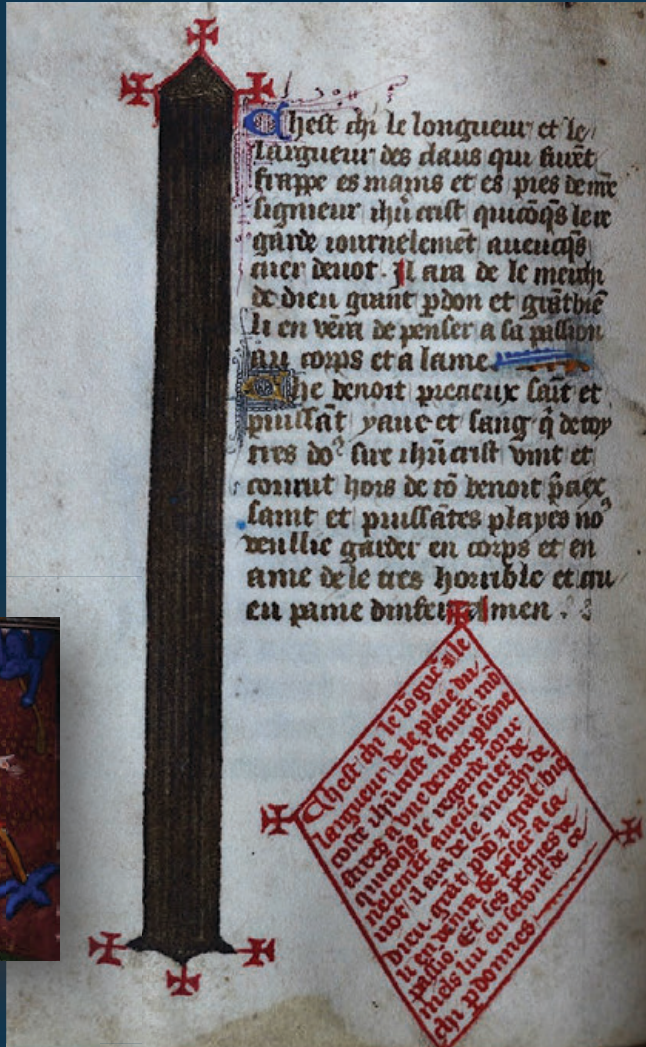 Chest chi le longueur et le
largueur des claus qui furēt
frappe es mains et es pies de nre
signieur ihūcrist quicōqs le re
garde iournelemēt aueucqs
cuer deuot. Il ara de le merchi
de dieu grant pdon et grāt biē
li en vēra de penser a sa passion
au corps et a lame
He benoit precieux sait et
puissāt yaue et sang q̄ de toy
tres do⁹ sire ihūcrist vint et
courut hors de tō benoit p̄aex
saint et puissātes playes no⁹
veullie garder en corps et en
ame de le tres horrible et
eu paine dinfer Amen
Chest chi le lōgue et le
largueur de le plaie du
coste ihūcrist q̄ furēt mō
strees a vne deuote psone
quicōqs le regarde iour
nelemēt aueuc cuer de
uot il ara de le merchi de
dieu grāt pdō 2 grāt biē
li en vēra de pēser a sa
passio. Et ses pechies de
miels lui en seront de ce
chi pdonnes